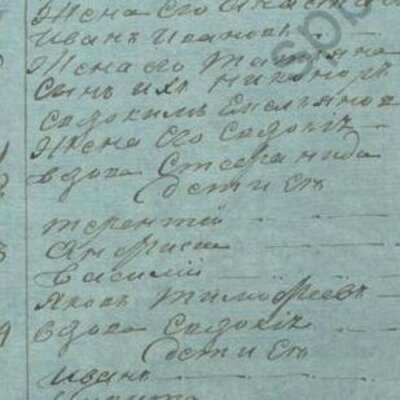 Жена его Анаста
Иванъ Ивановъ
Жена его Татьяна
Сынъ ихъ Никоноръ
Евдокимъ Емельянов
Жена его Евдокіѣ
вдова Стефанида
дети ея
терентій
Анфиса
Василій
Яковъ Тимофеевъ
вдова Евдокіѣ
дети ея
Иванъ
spb